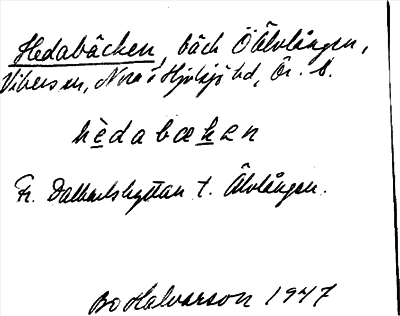 Hedabäcken, bäch Ö Älvlången,
Vikers sn, Nora o Hjulsjö bd, Ör. l.
hèdabækən
Fr. Dalkarlshyttan t. Älvlången.
Bo Halvarson 1947